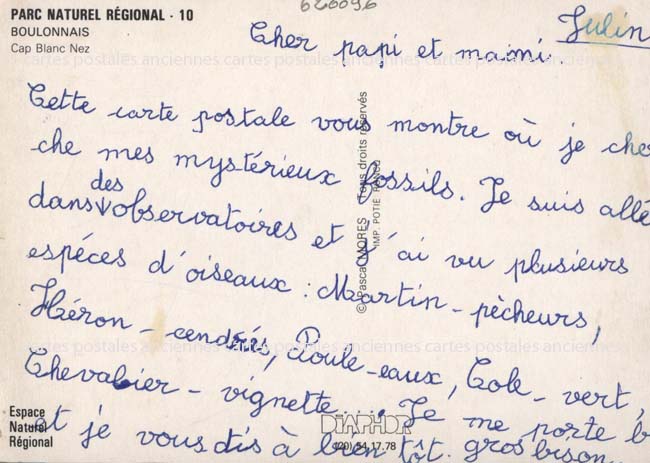 620096
PARC NATUREL RÉGIONAL · 10
BOULONNAIS
Cap Blanc Nez
Julin
Cher papi et mami.
cartes postales anciennes cartes postales anciennes cartes postales anciennes
Cette carte postale vous montre où je cher
che mes mystérieux fossils. Je suis allé
dans des observatoires et j'ai vu plusieurs
espéces d'oiseaux : Martin-pècheurs,
Héron-cendrés, Poule-eaux, Cole-vert,
cartes postales anciennes cartes postales anciennes cartes postales anciennes
Chevalier-vignette... Je me porte b
et je vous dis à bien tôt. gros bison
© Pascal MORES Tous droits réservés
IMP. POTIE
Espace
Naturel
Régional
DIAPHOR
(20) 54.17.78